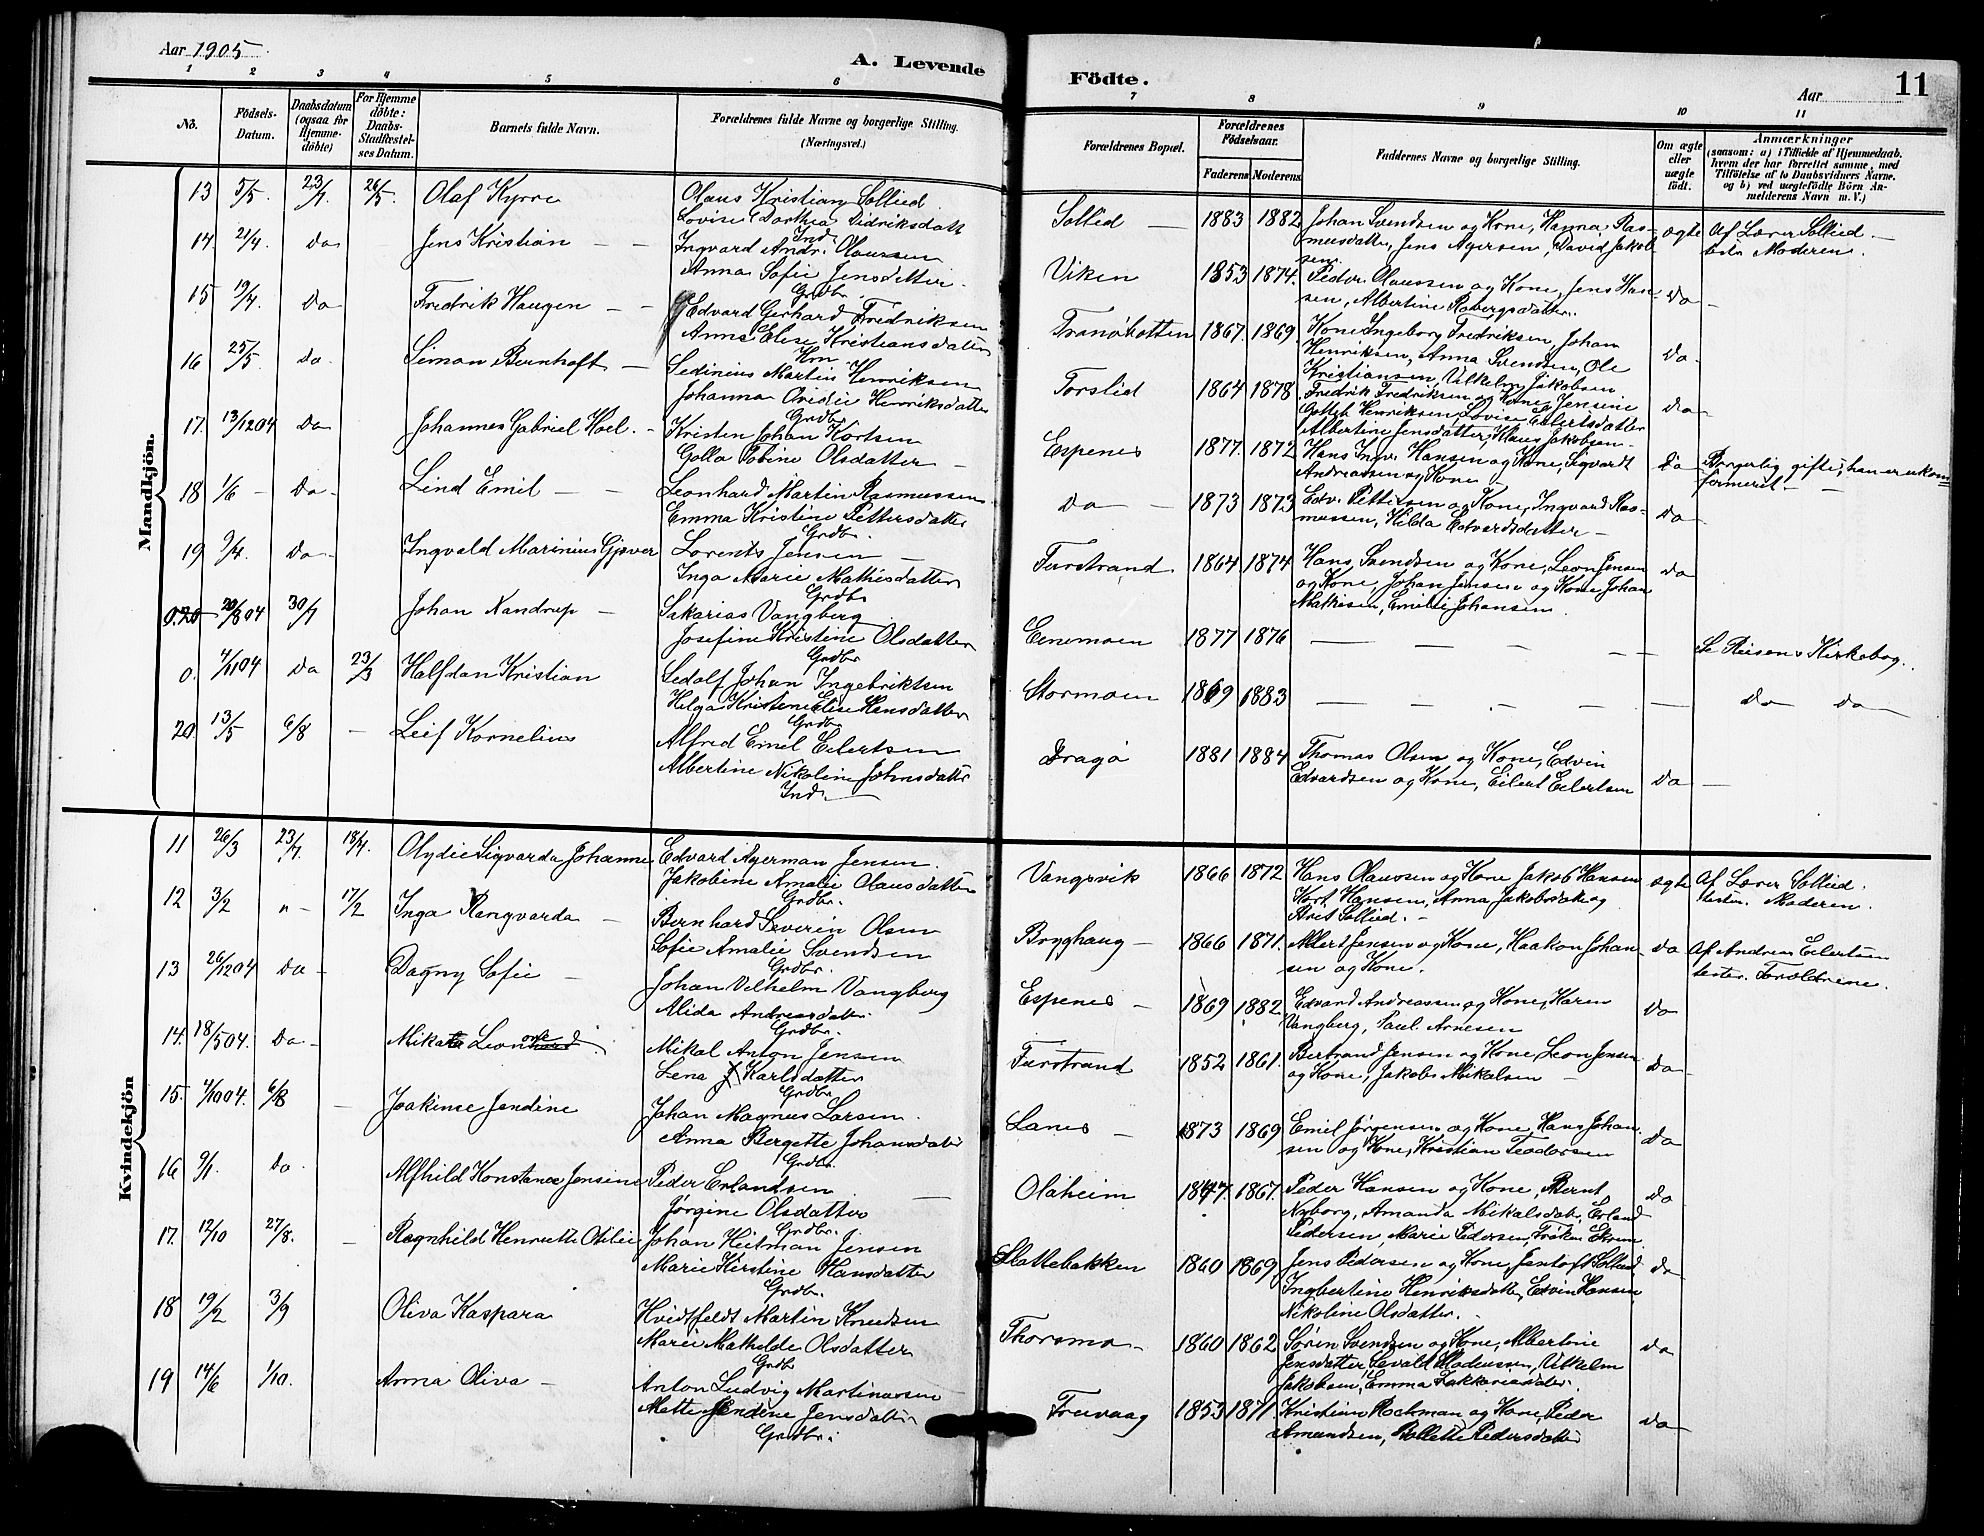 Aar 1905
A. Levende
1 2 3 4 5 6
No.
Födsels-Datum.
Daabsdatum (ogsaa for Hjemme-döbte)
For Hjemme döbte: Daabs-Stadfæstel-ses Datum.
Barnets fulde Navn.
Forældrenes fulde Navne og borgerlige Stilling. (Næringsvei.)
Mandkjön.
13 5/5. 23/7. 26/5 Olaf Kyrre Olaus Kristian Sollied.
Lovise Dorthea Didriksdatt
Ind.
14. 21/4. Do Jens Kristian — — Ingvard Andr. Olaussen
Anna Sofie Jensdatter.
Grdbr.
15 19/4. Do Fredrik Haugen — — Edvard Gerhard Fredriksen
Anna Elise Kristiansdatter
Hm.
16 25/5. Do. Simon Bernhoft — Sedinius Martin Henriksen
Johanna Ovidie Henriksdatter
Grdbr.
17. 13/12 04 Do Johannes Gabriel Hoel. - Kristen Johan Kortsen
Golla Tobine Olsdatter —
18 1/6 - Do - Lind Emil — — Leonhard Martin Rasmussen
Emma Kristine Pettersdatter
Grdbr.
19 9/4. Do - Ingvald Marinius Gjøver Lorents Jensen —
Inga Marie Mathisdatter
Grdbr
0. 20 20/8 04 30/7 Johan Nandrup — Sakarias Vangberg
Josefine Kristine Olsdatter
Grdbr
0. 4/11 04 Do 23/3 Halfdan Kristian Sedolf Johan Ingebriktsen
Helga Kristine Elise Hansdatter
Grdbr
20 13/5 6/8 — Leif Kornelius Alfred Emil Eilertsen
Albertine Nikoline Johnsdatter
Ind.
Kvindekjön
11 26/3 23/7. 18/4. Olydie Sigvarda Johanne Edvard Agerman Jensen.
Jakobine Amalie Olausdatter
Grdbr.
12 3/2 " - 17/2 Inga Rangvarda — Bernhard Severin Olsen
Sofie Amalie Svendsen
Grdbr.
13 26/12 04 Do - Dagny Sofie — Johan Vilhelm Vangberg
Alida Andreasdatter
Grdbr.
14. 18/5 04. Do - Mikata Leonhard Mikal Anton Jensen
Lena J. Karlsdatter
Grdbr.
15. 4/10 04. 6/8 — Joakime Jendine Johan Magnus Larsen.
Anna Bergette Johansdatter
Grdbr.
16 9/1. Do. Alfhild Konstance Jensine Peder Erlandsen
Jørgine Olsdatter
Grdbr.
17. 12/10 27/8. — Ragnhild Henriette Otilie Johan Heitman Jensen
Marie Kirstine Hansdatter
Grdbr.
18 19/2 3/9 Oliva Kaspara Hvidtfeldt Martin Knudsen
Marie Mathilde Olsdatter
Grdbr
19 14/6 1/10. Anna Oliva — Anton Ludvig Martinussen
Mette Jendine Jensdatter
Grdbr.
Födte.
11
Aar
7 8 9 10 11
Forældrenes Bopæl.
Forældrenes Födselsaar.
Faderens Moderens
Faddernes Navne og borgerlige Stilling.
Om ægte eller uægte födt.
Anmærkninger (saasom: a) i Tilfælde af Hjemmedaab, hvem der har forrettet samme, med Tilföielse af to Daabsvidners Navne, og b) ved uægtefödte Börn An-melderens Navn m. V.)
Sollid — 1883 1882 Johan Svendsen og Kone, Hanna Ras- ægte Af Lærer Sollied. —
musdatter, Jens Agersen, David Jakob- testr. Moderen.
sen.
Viken 1853 1874. Peder Olaussen og Kone, Jens Han- Do —
sen, Albertine Robergsdatter.
Tranøbotten 1867. 1869. Kone Ingeborg Fredriksen, Johan
Henriksen, Anna Svendsen, Ole Do.
Kristiansen, Vilhelm Jakobsen
Torslid 1864 1878 Fredrik Fredriksen og Kone, Jensine
Gottlb Henriksen, Lovise Eilertsdatter Do
Albertine Jensdatter, Klaus Jakobsen —
Espenes 1877. 1872 Hans Ingv. Hansen og Kone, Sigvardt Do Borgerlig gifte; han er ukon=
Andreassen og Kone — firmeret — —
Do — 1873 1873 Edv. Pettersen og Kone, Ingvard Ras-
mussen, Hilda Edvardsdatter — Do
Furstrand. 1864 1874 Hans Svendsen og Kone, Leon Jensen
og Kone, Johan Jensen og Kone Johan Do
Mathisen, Emilie Johansen.
Evnemoen 1877 1876 — — — — — Se Reisens Kirkebog.
Stormoen 1869 1883 — — — — — Do Do
Dragø 1881 1884 Thomas Olsen og Kone, Edvin
Edvardsen og Kone, Eilert Eilertsen Do —
Vangsvik 1866 1872 Hans Olaussen og Kone Jakob Hansen ægte Af Lærer Sollied.
Kort Hansen, Anna Jakobsdatter og testr. Moderen.
Aret Sollied. —
Bryghaug — 1866 1871. Albert Jensen og Kone, Haakon Johan- Do Af Andreas Eilertsen
sen og Kone. testr. Forældrene.
Espenes — 1869 1882 Edvard Andreassen og Kone, Karen
Vangberg, Paul. Arnesen Do
Furstrand 1852 1861. Bertrand Jensen og Kone, Leon Jensen
og Kone, Jakob Mikalsen — Do —
Lanes — 1873 1869 Emil Jørgensen og Kone, Hans Johan-
sen og Kone, Kristian Teodorsen Do
Olaheim 1847. 1867. Peder Hansen og Kone, Bernt Do
Nyborg, Amanda Mikalsdatter, Erland
Pedersen, Marie Pedersen, Frøken Ekrem
Slottebakken 1860 1869 Jens Pedersen og Kone, Jentoft Sollied Do
Ingbertine Henriksdatter, Edvin Hansen
Nikoline Olsdatter.
Thorsmo — 1860 1862 Søren Svendsen og Kone, Albertine Do
Jensdatter, Sevald Madeussen, Vilhelm
Jakobsen, Emma Sakkariasdatter.
Trevaag 1853 1871. Kristian Rochman og Kone, Peder
Amundsen, Bollette Pedersdatter Do —